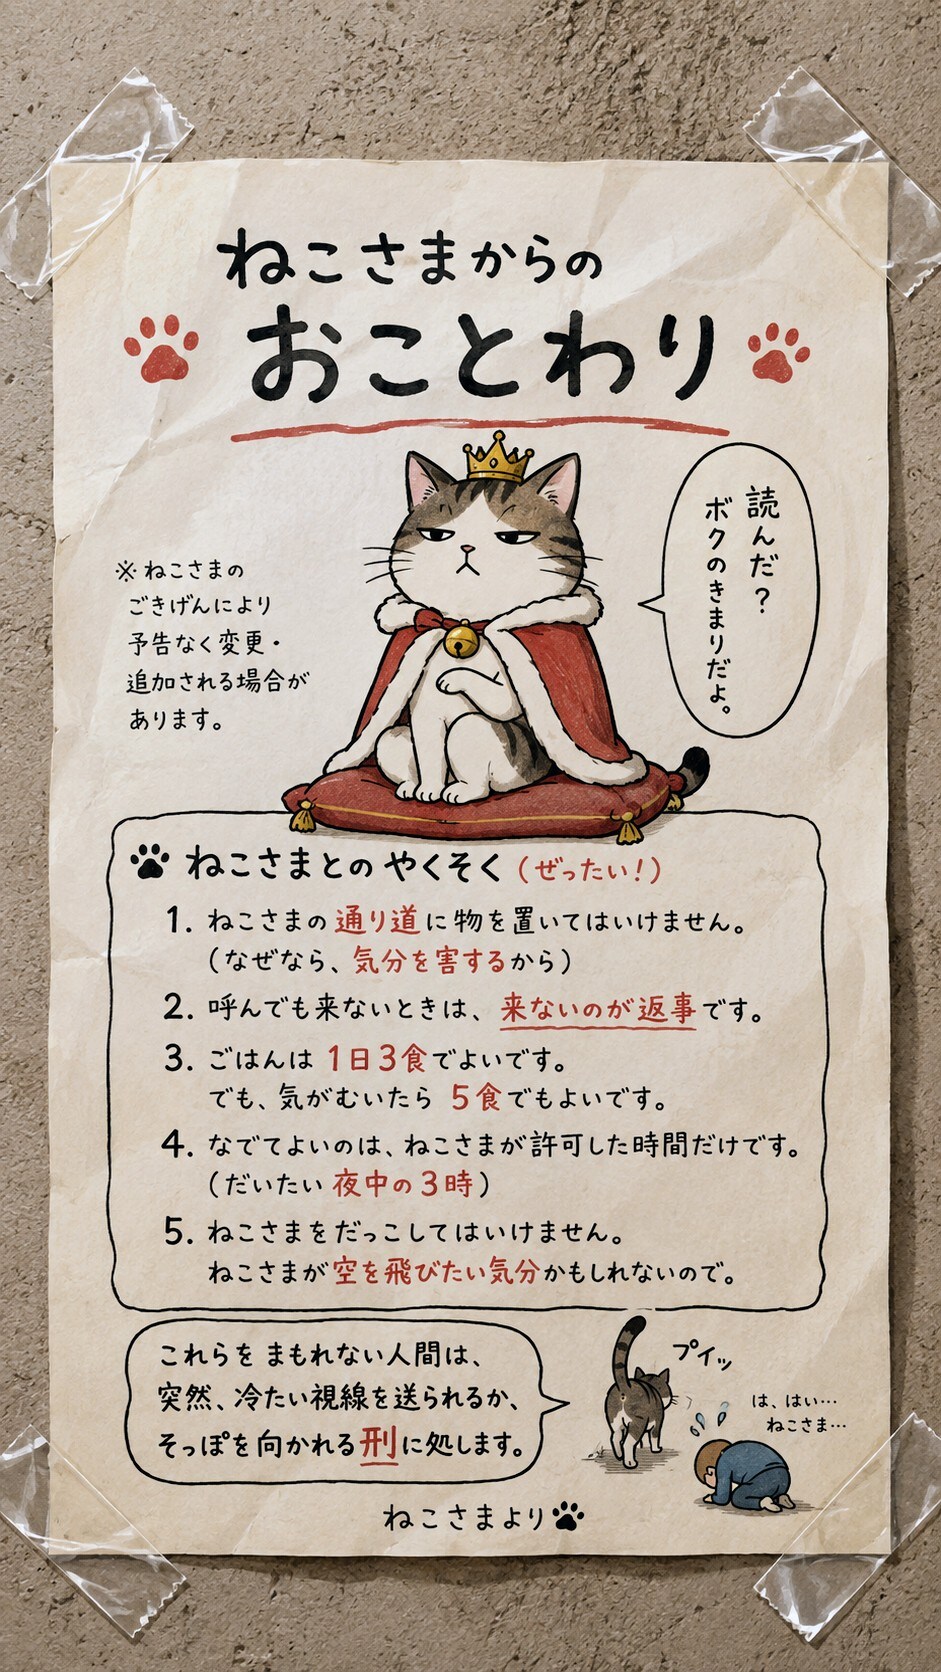 ねこさまからの
おことわり
※ねこさまの
ごきげんにより
予告なく変更・
追加される場合が
あります。
読んだ？
ボクのきまりだよ。
ねこさまとの やくそく (ぜったい!)
1. ねこさまの通り道に物を置いてはいけません。
(なぜなら、気分を害するから)
2. 呼んでも来ないときは、来ないのが返事です。
3. ごはんは 1日3食でよいです。
でも、気がむいたら 5食でもよいです。
4. なでてよいのは、ねこさまが許可した時間だけです。
(だいたい 夜中の3時)
5. ねこさまをだっこしてはいけません。
ねこさまが空を飛びたい気分かもしれないので。
これらを まもれない人間は、
突然、冷たい視線を送られるか、
そっぽを向かれる刑に処します。
プイッ
は、はい…
ねこさま…
ねこさまより